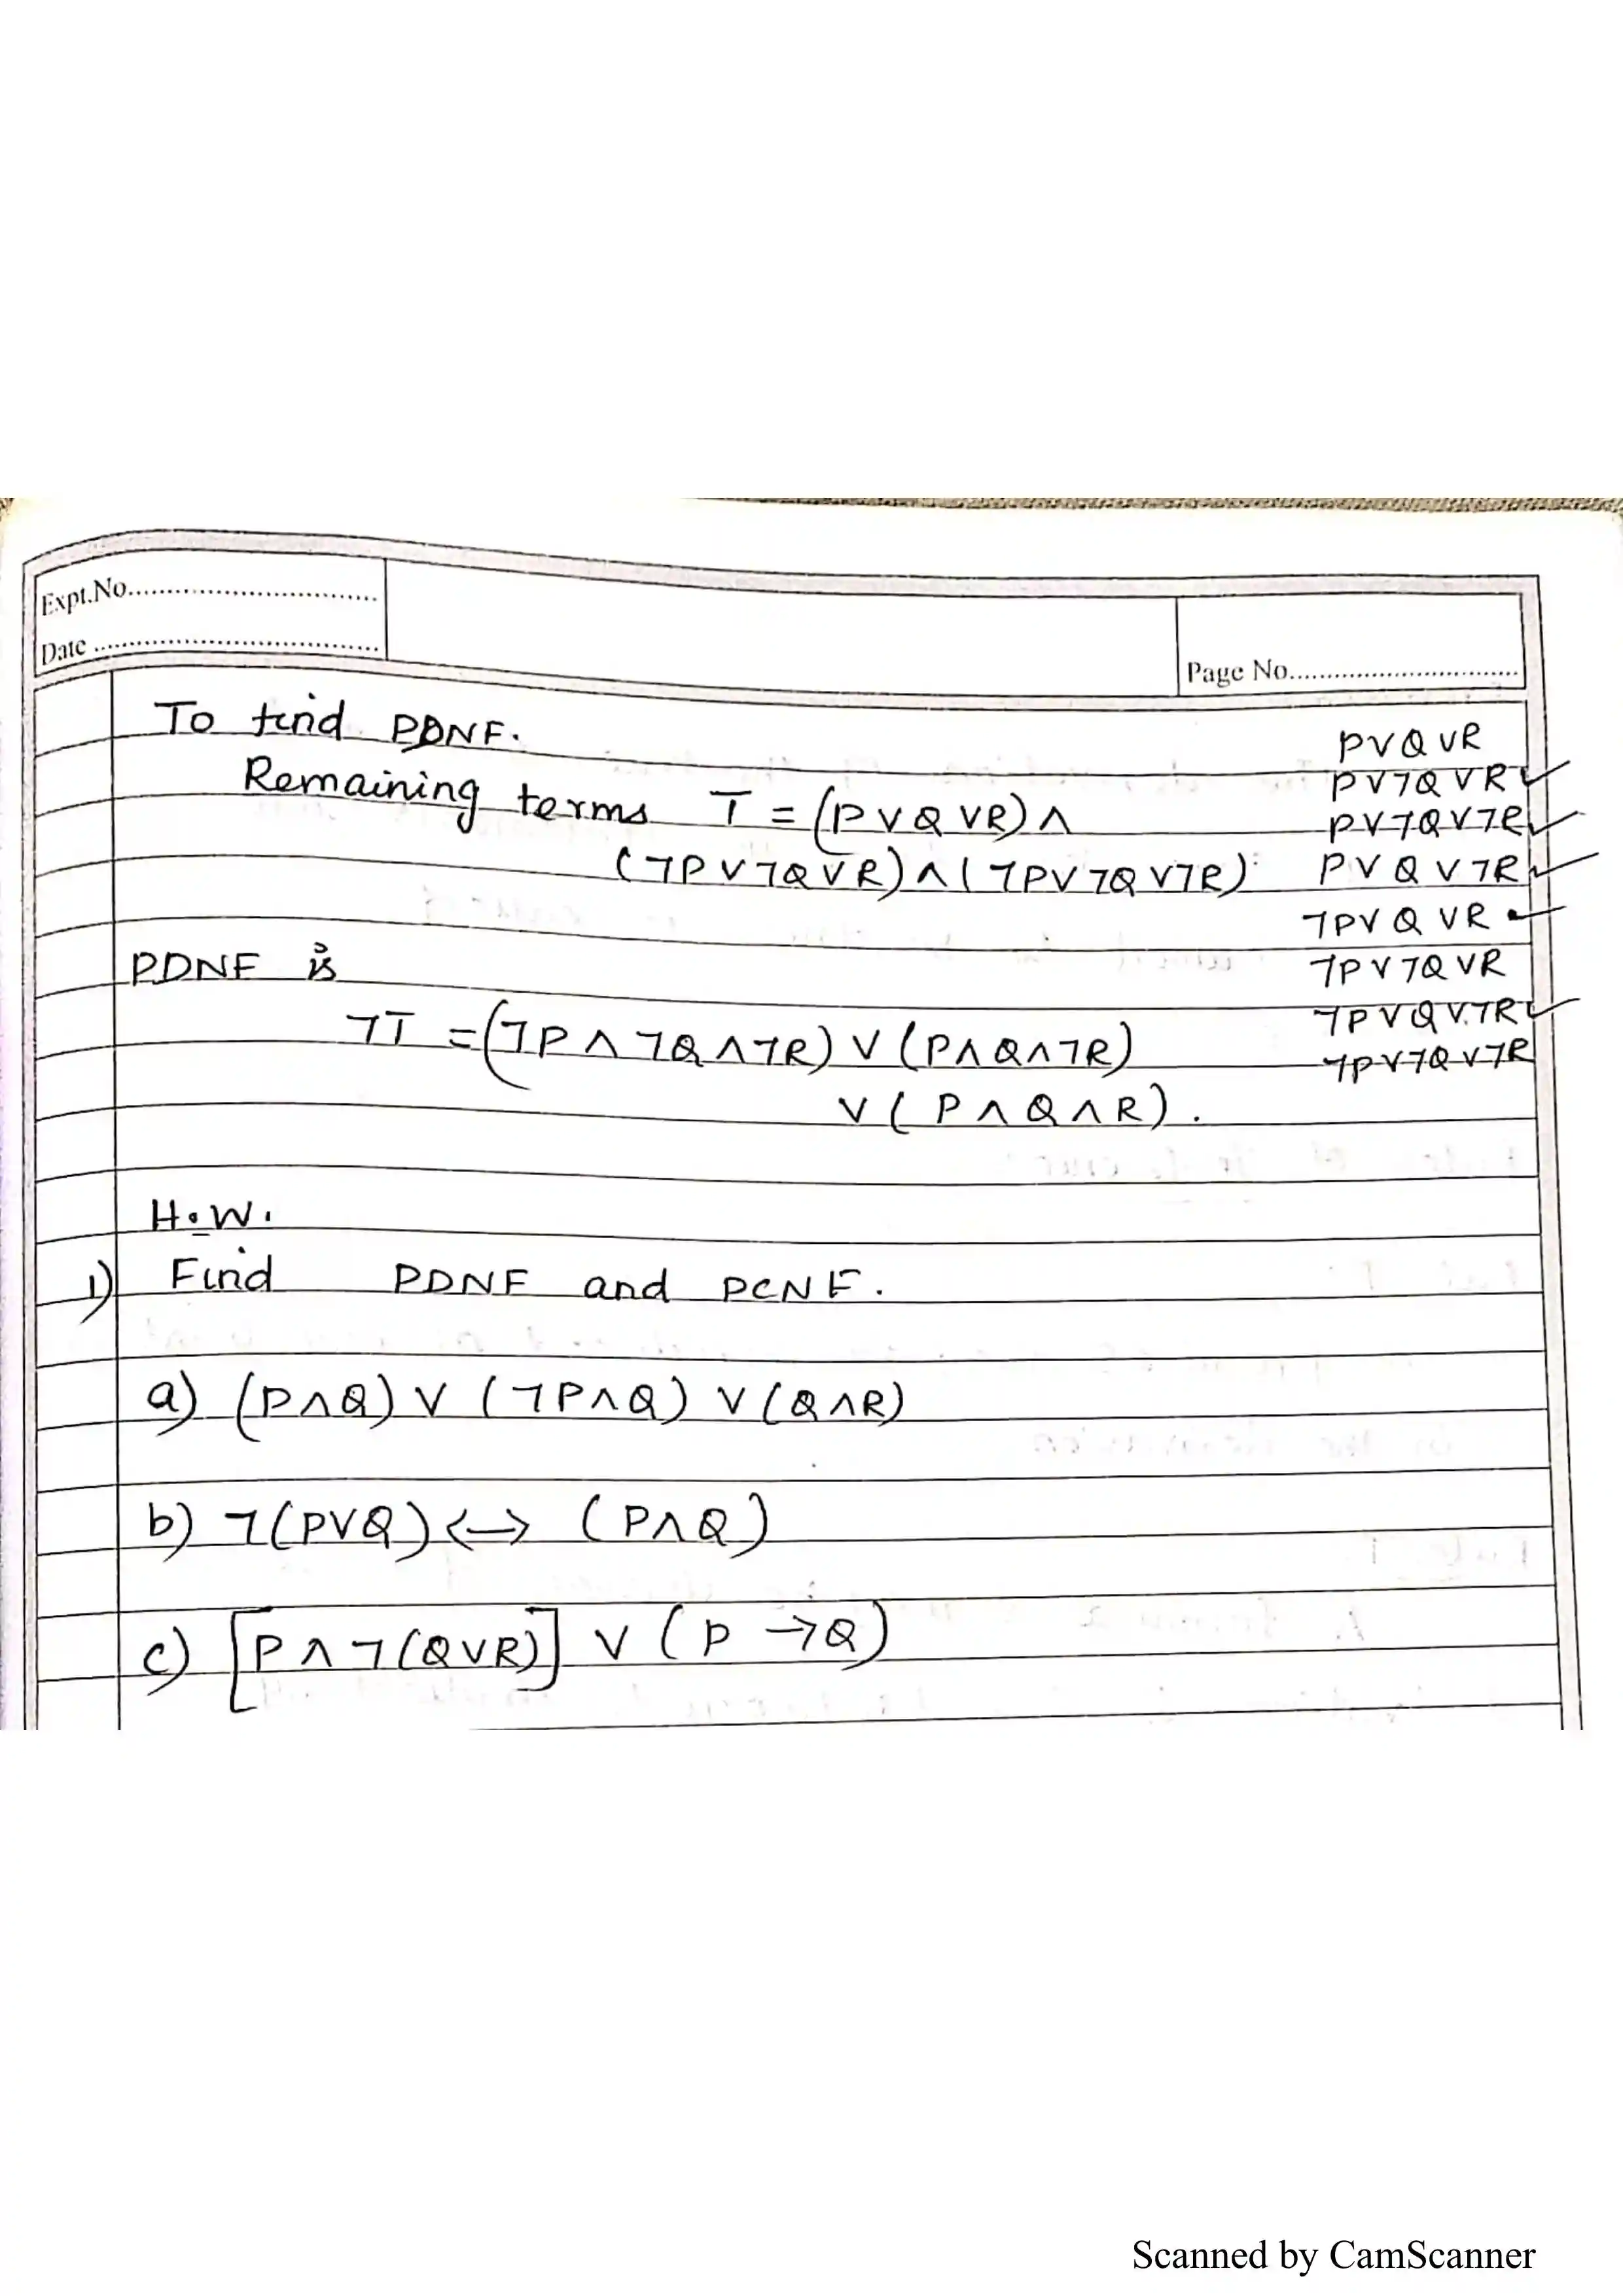 Expt.No..............................
Date ..................................
Page No..............................
To find PDNF.
Remaining terms T = (P ∨ Q ∨ R) ∧
(¬P ∨ ¬Q ∨ R) ∧ (¬P ∨ ¬Q ∨ ¬R)
PDNF is
¬T = (¬P ∧ ¬Q ∧ ¬R) ∨ (P ∧ Q ∧ ¬R)
∨ (P ∧ Q ∧ R).
P ∨ Q ∨ R
P ∨ ¬Q ∨ R ✓
P ∨ ¬Q ∨ ¬R ✓
P ∨ Q ∨ ¬R ✓
¬P ∨ Q ∨ R ✓
¬P ∨ ¬Q ∨ R
¬P ∨ Q ∨ ¬R ✓
¬P ∨ ¬Q ∨ ¬R
H.W.
1) Find PDNF and PCNF.
a) (P ∧ Q) ∨ (¬P ∧ Q) ∨ (Q ∧ R)
b) ¬(P ∨ Q) ↔ (P ∧ Q)
c) [P ∧ ¬(Q ∨ R)] ∨ (P → Q)
Scanned by CamScanner